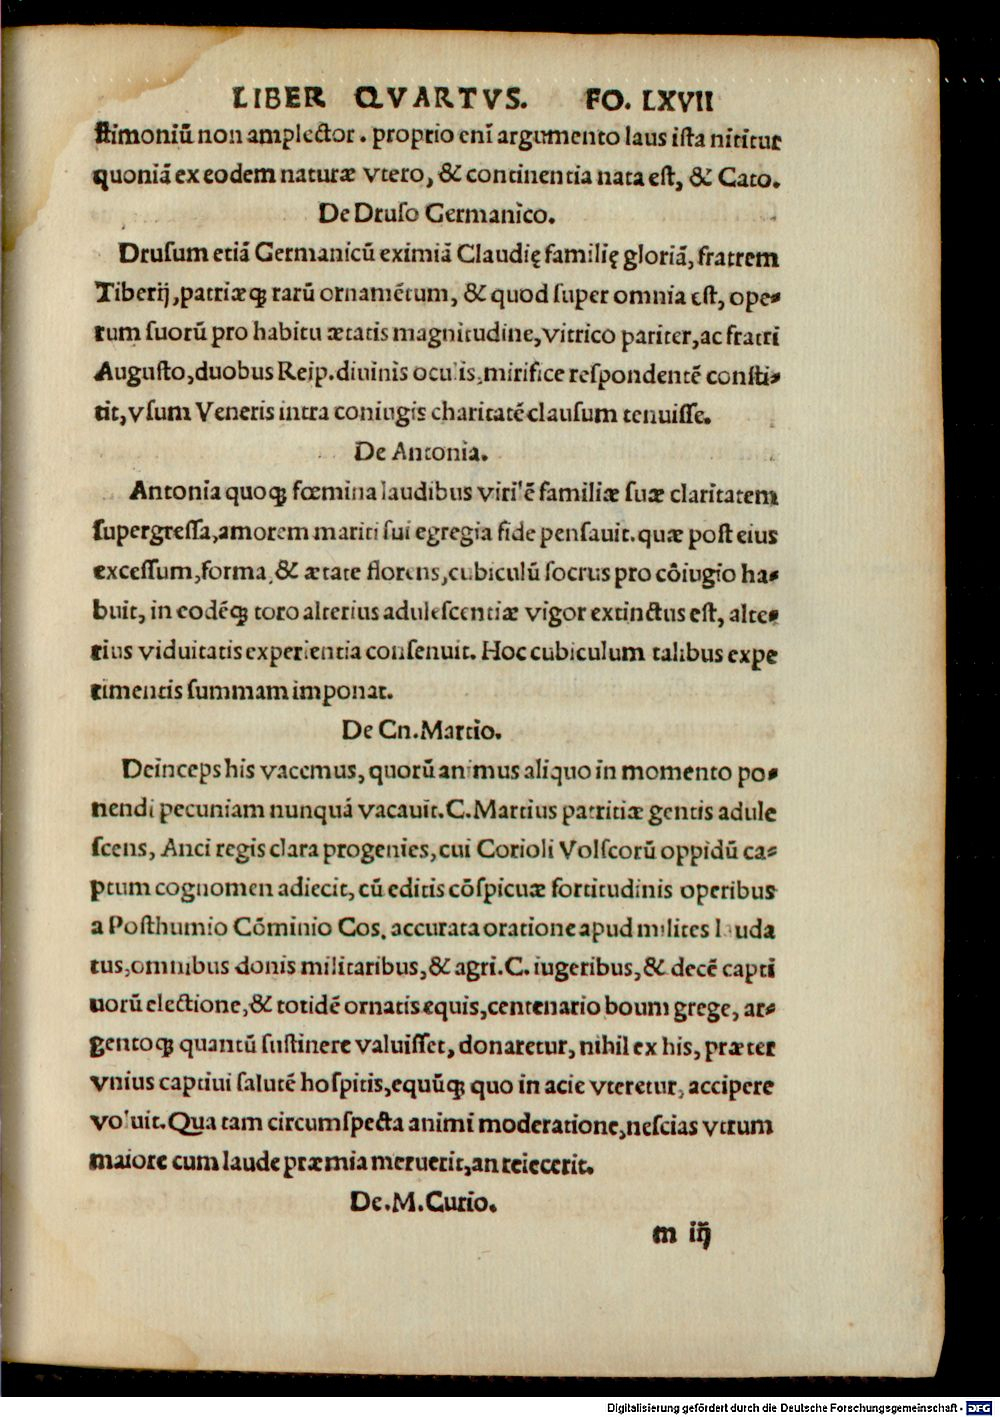 LIBER QVARTVS. FO. LXVII
ſtimoniū non amplector. proprio enī argumento laus iſta nititur
quoniā ex eodem naturæ vtero, & continentia nata eſt, & Cato.
De Druſo Germanico.
Druſum etiā Germanicū eximiā Claudię familię gloriā, fratrem
Tiberij, patriæq; rarū ornamētum, & quod ſuper omnia eſt, ope-
rum ſuorū pro habitu ætatis magnitudine, vitrico pariter, ac fratri
Auguſto, duobus Reip. diuinis oculis, mirifice reſpondentē conſti-
tit, vſum Veneris intra coniugis charitatē clauſum tenuiſſe.
De Antonia.
Antonia quoq; fœmina laudibus virilē familiæ ſuæ claritatem
ſupergreſſa, amorem mariti ſui egregia fide penſauit. quæ poſt eius
exceſſum, forma, & ætate florens, cubiculū ſocrus pro cōiugio ha-
buit, in eodēq; toro alterius aduleſcentiæ vigor extinctus eſt, alte-
rius viduitatis experientia conſenuit. Hoc cubiculum talibus expe
rimentis ſummam imponat.
De Cn. Martio.
Deinceps his vacemus, quorū animus aliquo in momento po-
nendi pecuniam nunquā vacauit. C. Martius patritiæ gentis adule
ſcens, Anci regis clara progenies, cui Corioli Volſcorū oppidū ca-
ptum cognomen adiecit, cū editis cōſpicuæ fortitudinis operibus
a Poſthumio Cōminio Cos. accurata oratione apud milites lauda
tus, omnibus donis militaribus, & agri. C. iugeribus, & decē capti
uorū electione, & totidē ornatis equis, centenario boum grege, ar-
gentoq; quantū ſuſtinere valuiſſet, donaretur, nihil ex his, præter
vnius captiui ſalutē hoſpitis, equūq; quo in acie vteretur, accipere
voluit. Qua tam circumſpecta animi moderatione, neſcias vtrum
maiore cum laude præmia meruerit, an reiecerit.
De. M. Curio.
m iij
Digitalisierung gefördert durch die Deutsche Forschungsgemeinschaft - DFG